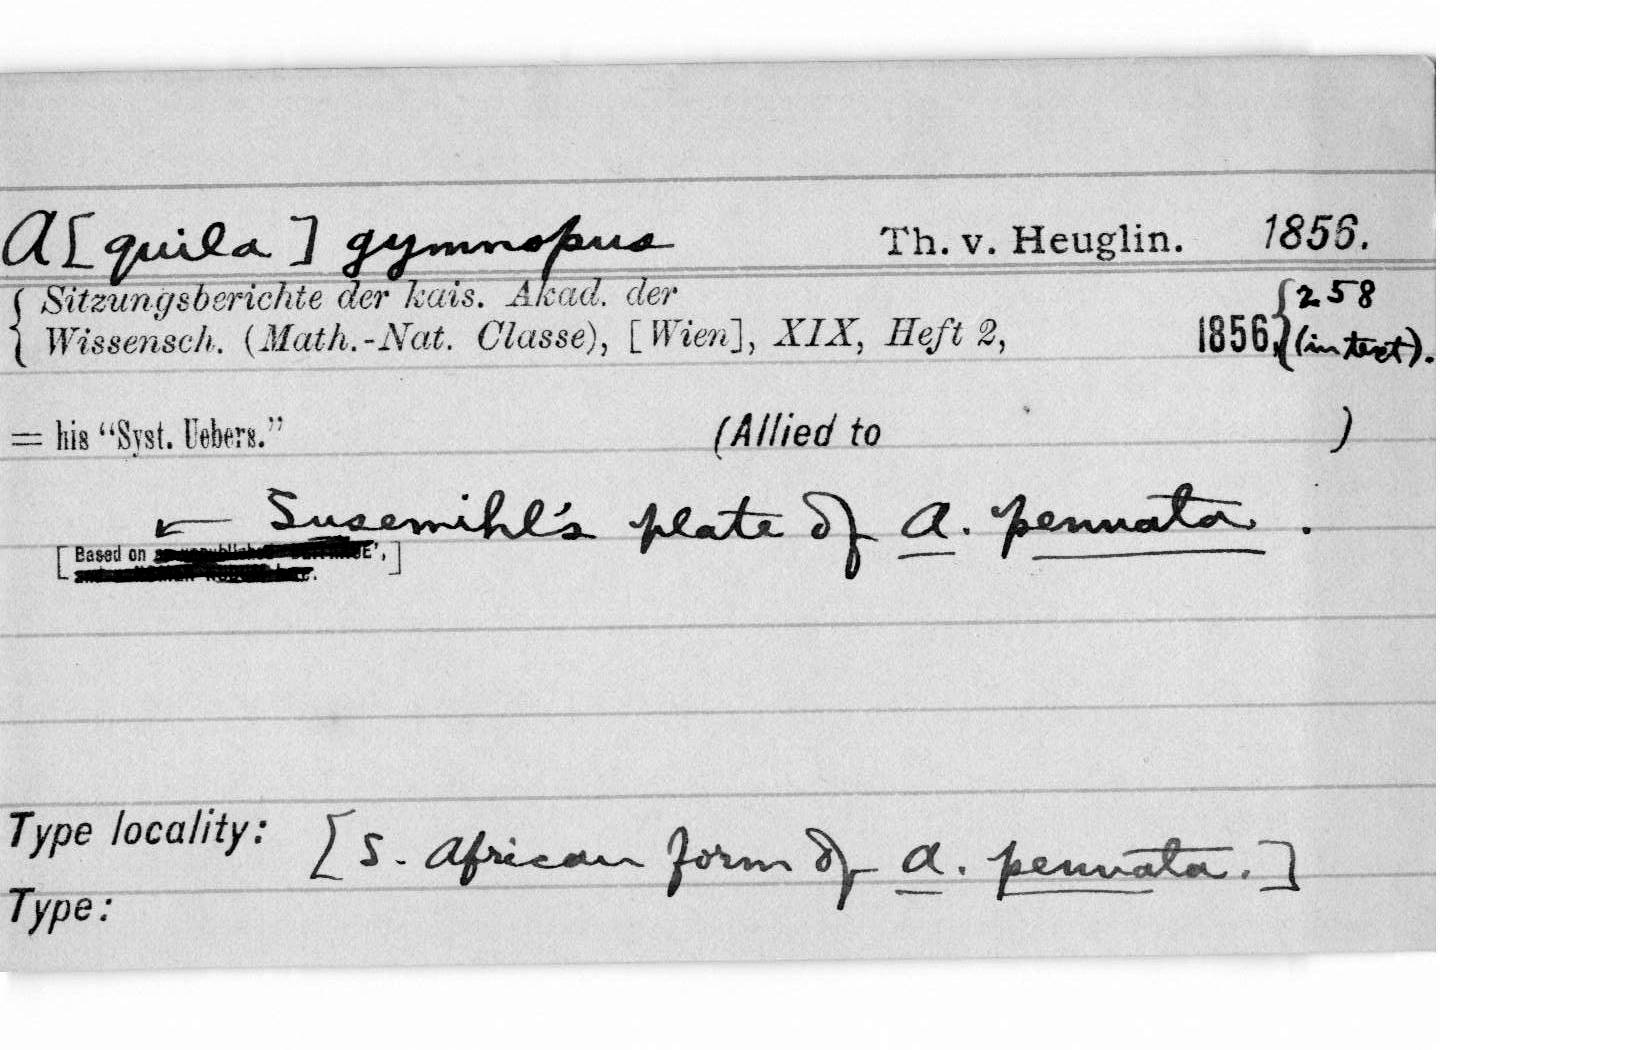 A[quila] gymnopus Th. v. Heuglin. 1856.
{ Sitzungsberichte der kais. Akad. der { 258
Wissensch. (Math.-Nat. Classe), [Wien], XIX, Heft 2, 1856, (in text).
= his “Syst. Uebers.” (Allied to )
Susemihl's plate of A. pennata.
[Based on ]
Type locality: [S. African form of A. pennata.]
Type: